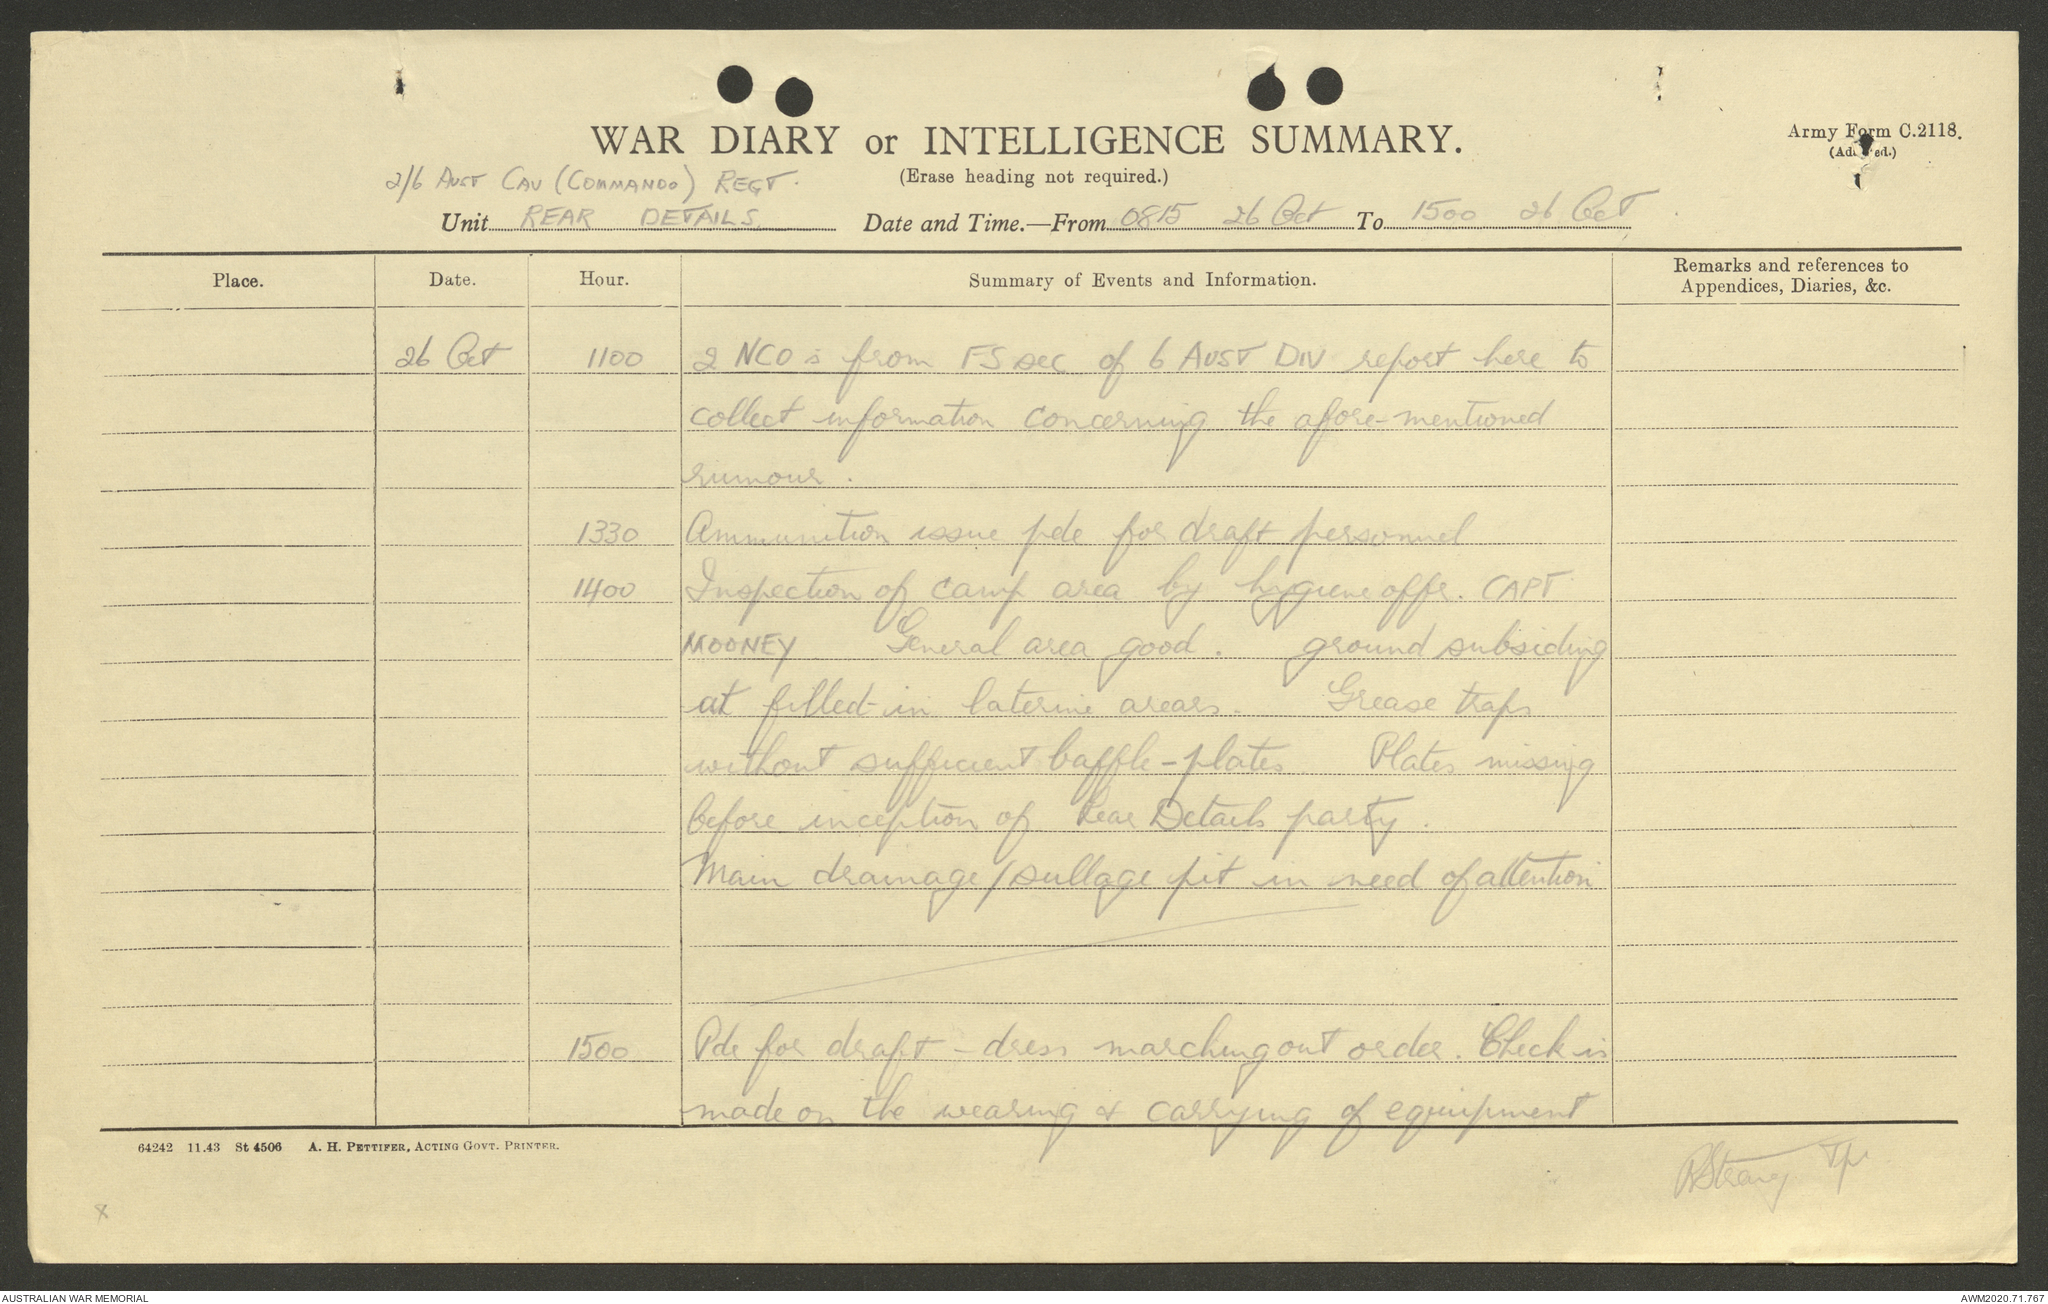 WAR DIARY or INTELLIGENCE SUMMARY.
Army Form C.2118.
(Erase heading not required.)
2/6 AUST CAV (COMMANDO) REGT.
Unit REAR DETAILS. Date and Time.—From 0815 26 Oct To 1500 26 Oct.
Place. Date. Hour. Summary of Events and Information. Remarks and references to
Appendices, Diaries, &c.
26 Oct 1100 2 NCO's from FS sec of 6 AUST DIV report here to
collect information concerning the afore-mentioned
rumour.
1330 Ammunition issue pde for draft personnel
1400 Inspection of camp area by hygiene offr. CAPT
MOONEY General area good. ground subsiding
at filled-in laterine arears. Grease traps
without sufficient baffle-plates. Plates missing
before inception of Rear Details party.
Main drainage/sullage pit in need of attention
1500 Pde for draft - dress marching out order. Check is
made on the wearing & carrying of equipment
64242 11.43 St 4506 A. H. PETTIFER, ACTING GOVT. PRINTER.
Tpr
x
AUSTRALIAN WAR MEMORIAL AWM2020.71.767